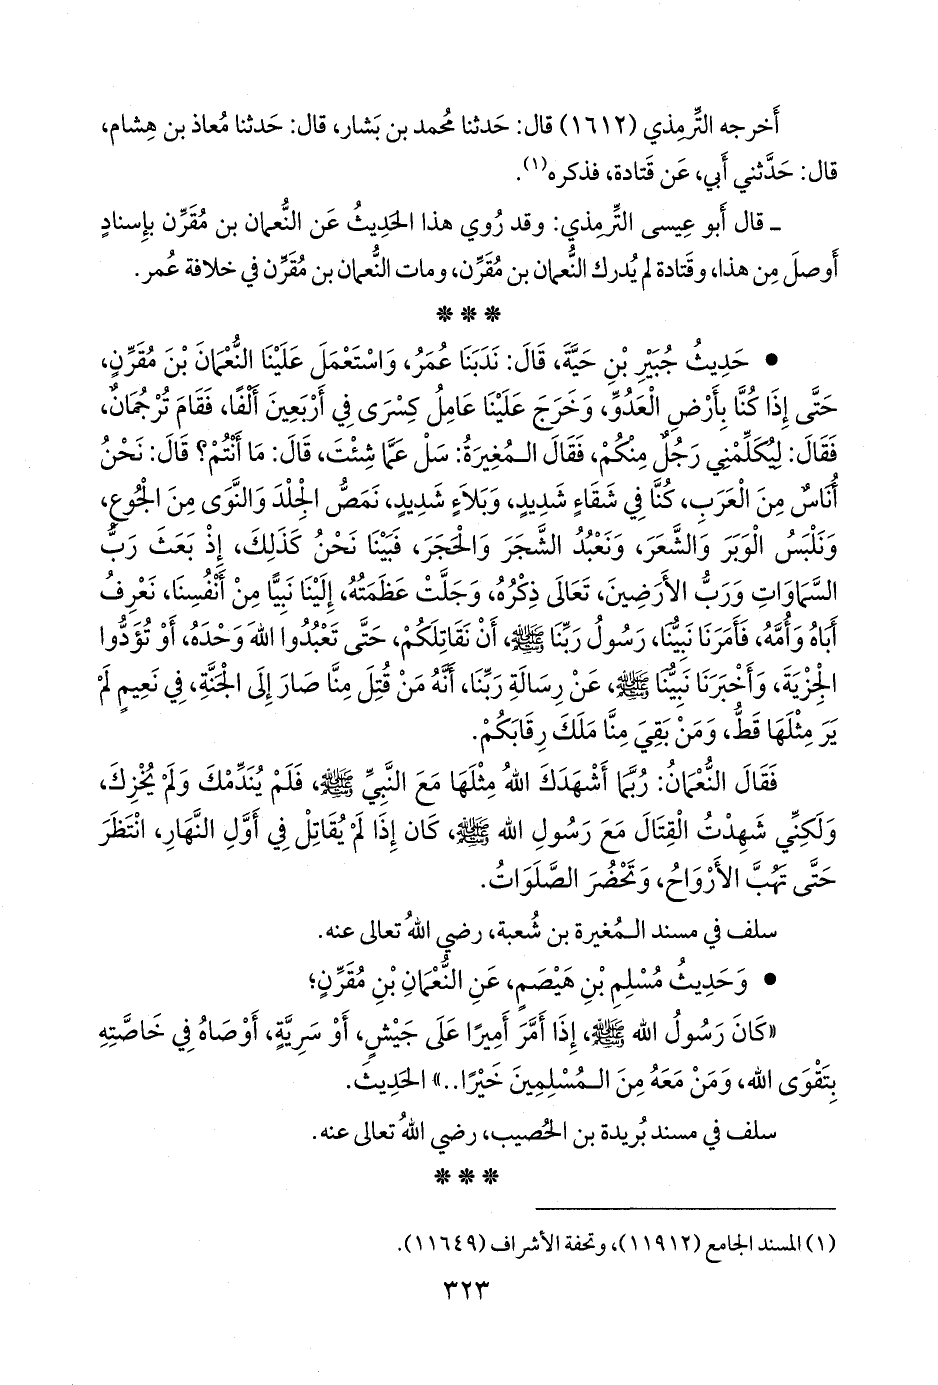 أَخرجه التِّرمِذي (١٦١٢) قال: حَدثنا مُحمد بن بَشار، قال: حَدثنا مُعاذ بن هِشام،
قال: حَدَّثني أَبي، عَن قَتادة، فذكره(١).
ـ قال أَبو عِيسى التِّرمِذي: وقد رُوي هذا الحَديثُ عَن النُّعمان بن مُقَرِّن بإِسنادٍ
أَوصلَ مِن هذا، وقَتادة لم يُدرك النُّعمان بن مُقَرِّن، ومات النُّعمان بن مُقَرِّن في خلافة عُمر.
* * *
• حَدِيثُ جُبَيْرِ بْنِ حَيَّةَ، قَالَ: نَدَبَنَا عُمَرُ، وَاسْتَعْمَلَ عَلَيْنَا النُّعْمَانَ بْنَ مُقَرِّنٍ،
حَتَّى إِذَا كُنَّا بِأَرْضِ الْعَدُوِّ، وَخَرَجَ عَلَيْنَا عَامِلُ كِسْرَى فِي أَرْبَعِينَ أَلْفًا، فَقَامَ تُرْجُمَانٌ،
فَقَالَ: لِيُكَلِّمْنِي رَجُلٌ مِنْكُمْ، فَقَالَ الْمُغِيرَةُ: سَلْ عَمَّا شِئْتَ، قَالَ: مَا أَنْتُمْ؟ قَالَ: نَحْنُ
أُنَاسٌ مِنَ الْعَرَبِ، كُنَّا فِي شَقَاءٍ شَدِيدٍ، وَبَلاَءٍ شَدِيدٍ، نَمَصُّ الْجِلْدَ وَالنَّوَى مِنَ الْجُوعِ،
وَنَلْبَسُ الْوَبَرَ وَالشَّعَرَ، وَنَعْبُدُ الشَّجَرَ وَالْحَجَرَ، فَبَيْنَا نَحْنُ كَذَلِكَ، إِذْ بَعَثَ رَبُّ
السَّمَاوَاتِ وَرَبُّ الأَرَضِينَ، تَعَالَى ذِكْرُهُ، وَجَلَّتْ عَظَمَتُهُ، إِلَيْنَا نَبِيًّا مِنْ أَنْفُسِنَا، نَعْرِفُ
أَبَاهُ وَأُمَّهُ، فَأَمَرَنَا نَبِيُّنَا، رَسُولُ رَبِّنَا ﷺ، أَنْ نُقَاتِلَكُمْ، حَتَّى تَعْبُدُوا اللهَ وَحْدَهُ، أَوْ تُؤَدُّوا
الْجِزْيَةَ، وَأَخْبَرَنَا نَبِيُّنَا ﷺ، عَنْ رِسَالَةِ رَبِّنَا، أَنَّهُ مَنْ قُتِلَ مِنَّا صَارَ إِلَى الْجَنَّةِ، فِي نَعِيمٍ لَمْ
يَرَ مِثْلَهَا قَطُّ، وَمَنْ بَقِيَ مِنَّا مَلَكَ رِقَابَكُمْ.
فَقَالَ النُّعْمَانُ: رُبَّمَا أَشْهَدَكَ اللهُ مِثْلَهَا مَعَ النَّبِيِّ ﷺ، فَلَمْ يُنَدِّمْكَ وَلَمْ يُخْزِكَ،
وَلَكِنِّي شَهِدْتُ الْقِتَالَ مَعَ رَسُولِ اللهِ ﷺ، كَانَ إِذَا لَمْ يُقَاتِلْ فِي أَوَّلِ النَّهَارِ، انْتَظَرَ
حَتَّى تَهُبَّ الأَرْوَاحُ، وَتَحْضُرَ الصَّلَوَاتُ.
سلف في مسند المُغيرة بن شُعبة، رضي اللهُ تعالى عنه.
• وَحَدِيثُ مُسْلِمِ بْنِ هَيْصَمٍ، عَنِ النُّعْمَانِ بْنِ مُقَرِّنٍ؛
«كَانَ رَسُولُ اللهِ ﷺ، إِذَا أَمَّرَ أَمِيرًا عَلَى جَيْشٍ، أَوْ سَرِيَّةٍ، أَوْصَاهُ فِي خَاصَّتِهِ
بِتَقْوَى اللهِ، وَمَنْ مَعَهُ مِنَ الْمُسْلِمِينَ خَيْرًا..» الْحَدِيثَ.
سلف في مسند بُريدة بن الحُصيب، رضي اللهُ تعالى عنه.
* * *
(١) المسند الجامع (١١٩١٢)، وتحفة الأشراف (١١٦٤٩).
٣٢٣